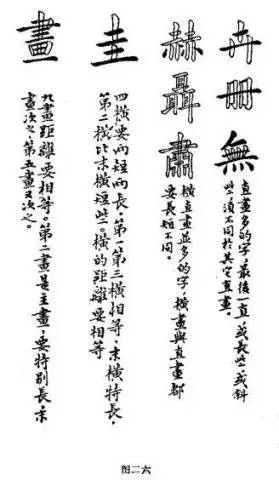 卉冊無
直畫多的字，最後一直或長些，或斜
些，須不同於其它直畫。
赫聶肅
橫直畫並多的字，橫畫與直畫都
要長短不同。
圭
四橫要兩短兩長，第一第三橫相等，末橫特長，
第二橫比末橫短些。橫的距離要相等
畫
九畫距離要相等。第二畫是主畫，要特別長，末
畫次之，第五畫又次之。
图二六